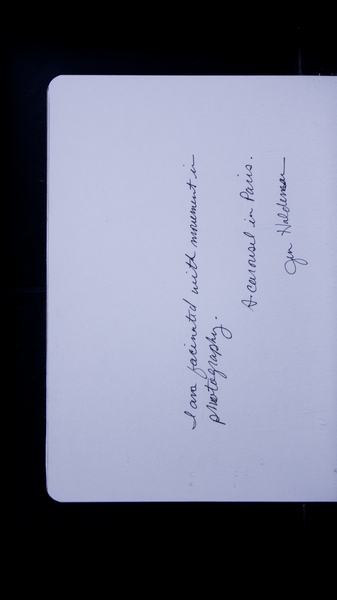 I am facinated with movement in
photography.
A carousel in Paris.
Jen Haldeman